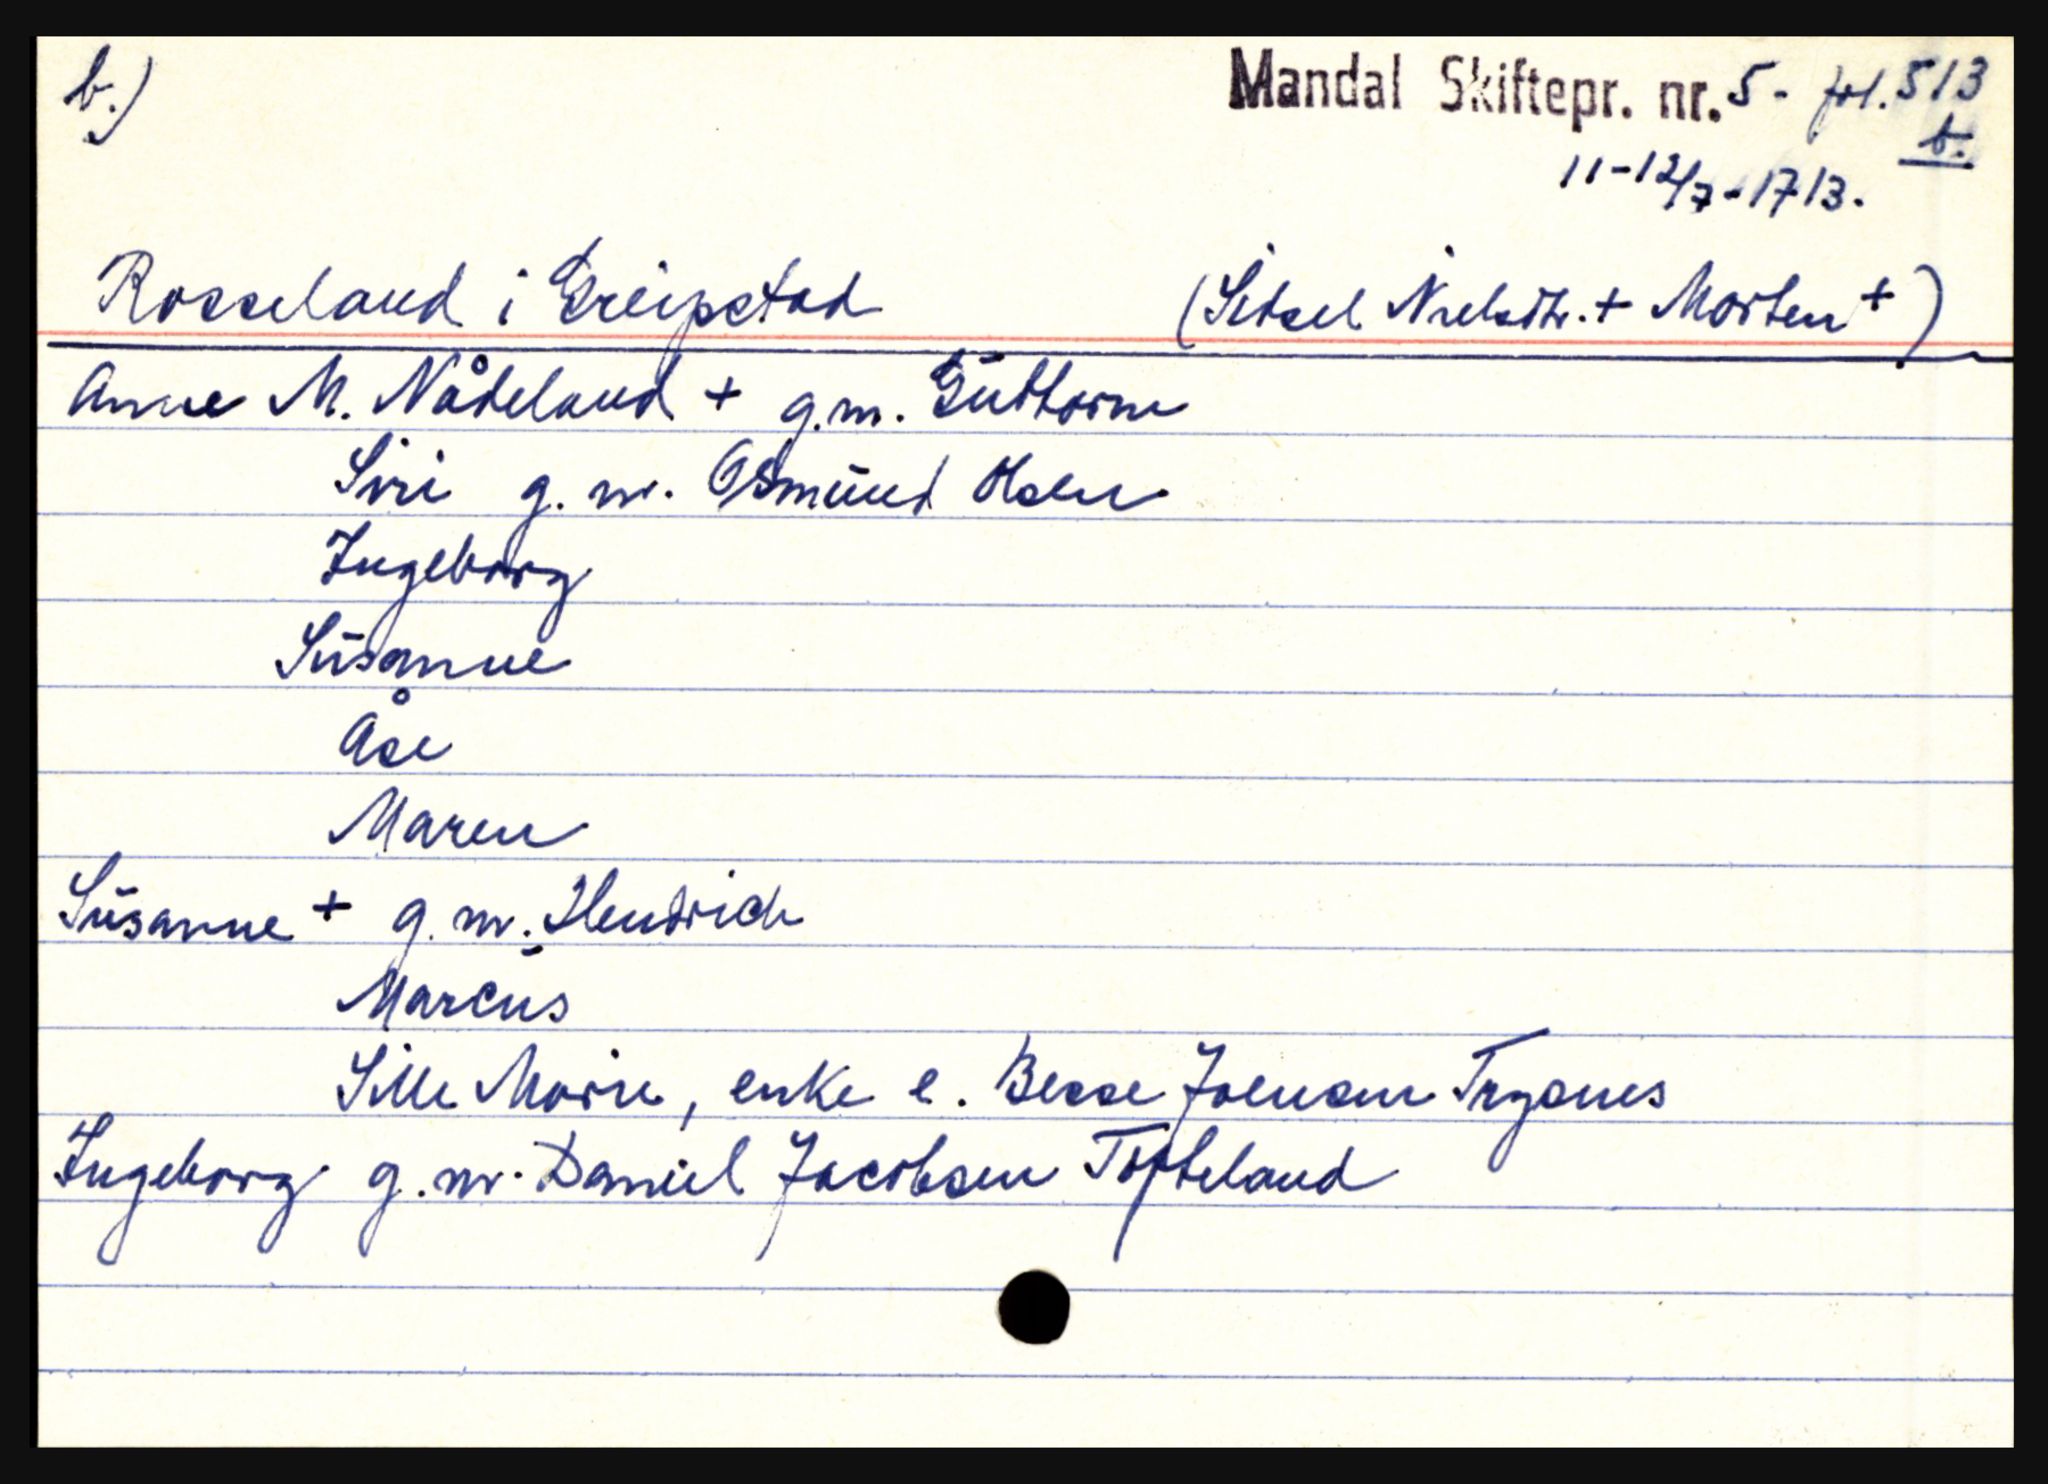 b.)
Mandal Skiftepr. nr. 5 - fol. 513
b.
11-12/7-1713.
Rosseland i Greipstad (Sitsel Nielsdtr. + Morten +)
Anne M. Nådeland + g.m. Guttorm
Siri g.m. Osmund Olsen
Ingeborg
Susanne
Åse
Maren
Susanne + g.m. Hendrich
Marcus
Sille Marie, enke e. Besse Joensen Trysnes
Ingeborg g.m. Daniel Jacobsen Tofteland